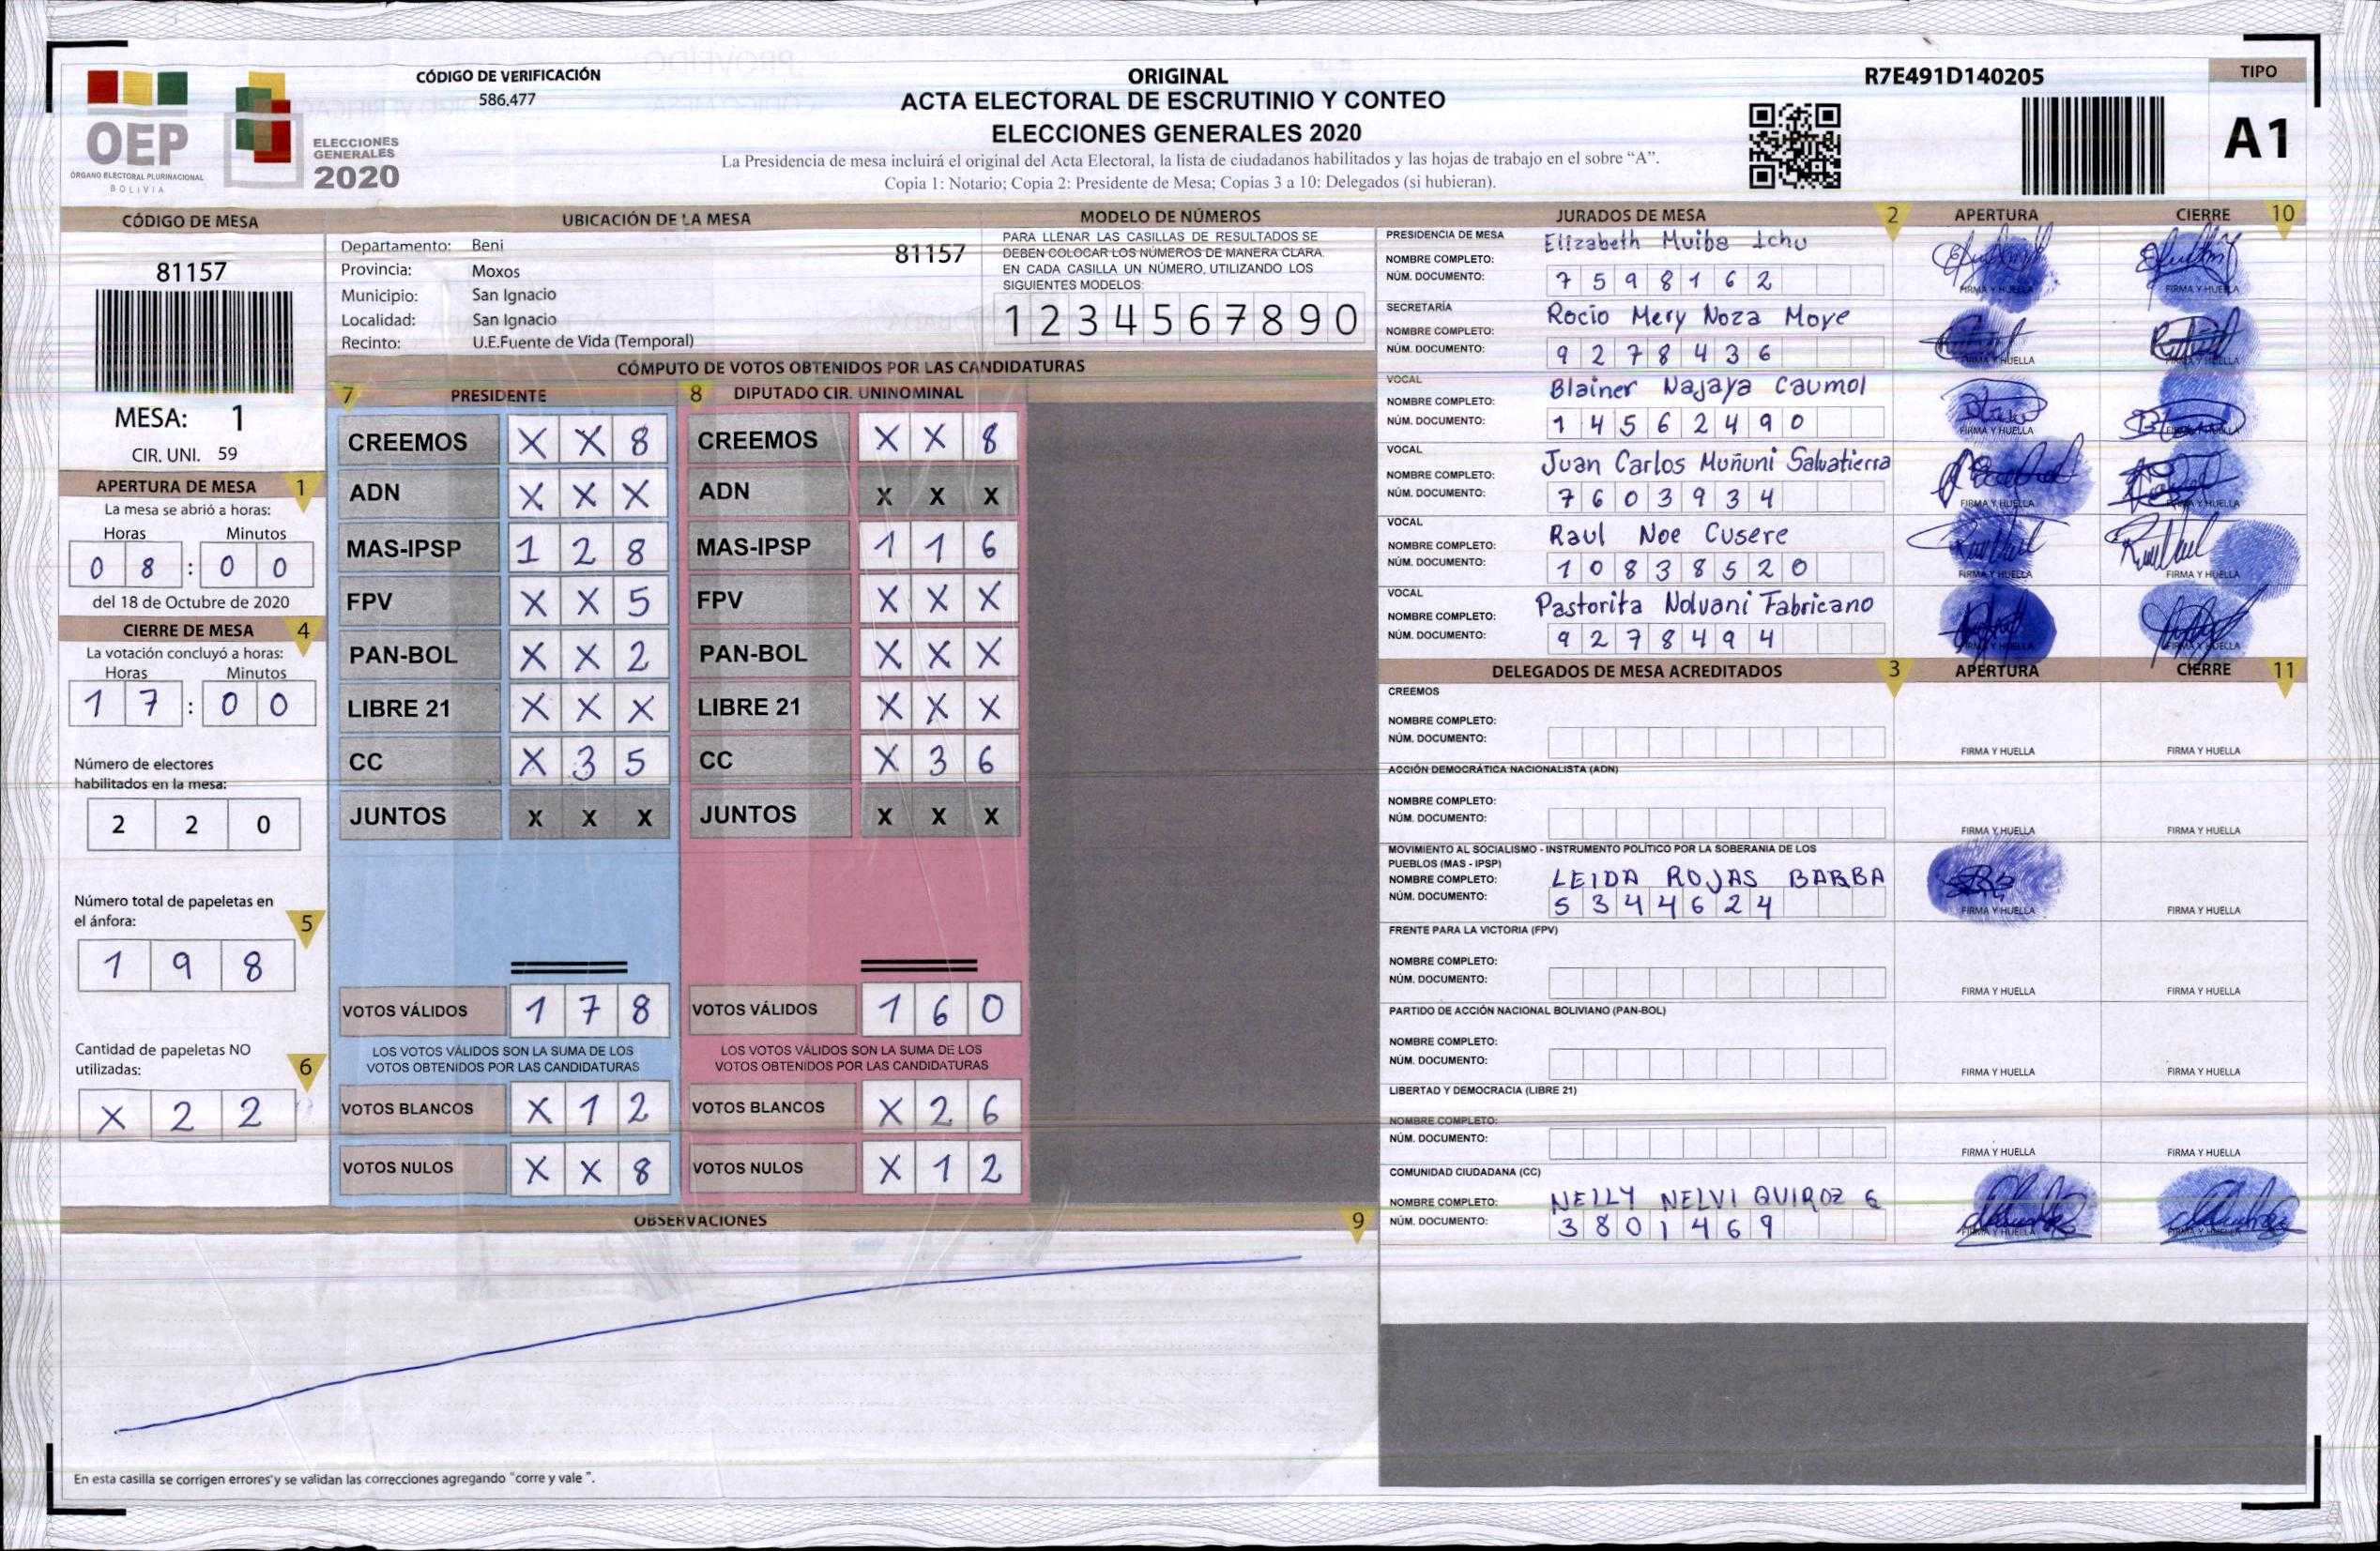 OEP
ÓRGANO ELECTORAL PLURINACIONAL
BOLIVIA
ELECCIONES
GENERALES
2020
CÓDIGO DE VERIFICACIÓN
586,477
ORIGINAL
ACTA ELECTORAL DE ESCRUTINIO Y CONTEO
ELECCIONES GENERALES 2020
La Presidencia de mesa incluirá el original del Acta Electoral, la lista de ciudadanos habilitados y las hojas de trabajo en el sobre “A”.
Copia 1: Notario; Copia 2: Presidente de Mesa; Copias 3 a 10: Delegados (si hubieran).
R7E491D140205
TIPO
A1
CÓDIGO DE MESA
81157
MESA: 1
CIR. UNI. 59
APERTURA DE MESA 1
La mesa se abrió a horas:
Horas Minutos
0 8 : 0 0
del 18 de Octubre de 2020
CIERRE DE MESA 4
La votación concluyó a horas:
Horas Minutos
1 7 : 0 0
Número de electores
habilitados en la mesa:
2 2 0
Número total de papeletas en
el ánfora: 5
1 9 8
Cantidad de papeletas NO
utilizadas: 6
X 2 2
UBICACIÓN DE LA MESA
Departamento: Beni
81157
Provincia: Moxos
Municipio: San Ignacio
Localidad: San Ignacio
Recinto: U.E.Fuente de Vida (Temporal)
MODELO DE NÚMEROS
PARA LLENAR LAS CASILLAS DE RESULTADOS SE
DEBEN COLOCAR LOS NÚMEROS DE MANERA CLARA.
EN CADA CASILLA UN NÚMERO, UTILIZANDO LOS
SIGUIENTES MODELOS:
1 2 3 4 5 6 7 8 9 0
CÓMPUTO DE VOTOS OBTENIDOS POR LAS CANDIDATURAS
7 PRESIDENTE
CREEMOS X X 8
ADN X X X
MAS-IPSP 1 2 8
FPV X X 5
PAN-BOL X X 2
LIBRE 21 X X X
CC X 3 5
JUNTOS X X X
VOTOS VÁLIDOS 1 7 8
LOS VOTOS VÁLIDOS SON LA SUMA DE LOS
VOTOS OBTENIDOS POR LAS CANDIDATURAS
VOTOS BLANCOS X 1 2
VOTOS NULOS X X 8
8 DIPUTADO CIR. UNINOMINAL
CREEMOS X X 8
ADN X X X
MAS-IPSP 1 1 6
FPV X X X
PAN-BOL X X X
LIBRE 21 X X X
CC X 3 6
JUNTOS X X X
VOTOS VÁLIDOS 1 6 0
LOS VOTOS VÁLIDOS SON LA SUMA DE LOS
VOTOS OBTENIDOS POR LAS CANDIDATURAS
VOTOS BLANCOS X 2 6
VOTOS NULOS X 1 2
OBSERVACIONES 9
En esta casilla se corrigen errores y se validan las correcciones agregando “corre y vale ”.
JURADOS DE MESA 2 APERTURA CIERRE 10
PRESIDENCIA DE MESA
NOMBRE COMPLETO: Elizabeth Muiba Ichu
NÚM. DOCUMENTO: 7 5 9 8 1 6 2
FIRMA Y HUELLA FIRMA Y HUELLA
SECRETARÍA
NOMBRE COMPLETO: Rocio Mery Noza Moye
NÚM. DOCUMENTO: 9 2 7 8 4 3 6
FIRMA Y HUELLA FIRMA Y HUELLA
VOCAL
NOMBRE COMPLETO: Blainer Najaya Caumol
NÚM. DOCUMENTO: 1 4 5 6 2 4 9 0
FIRMA Y HUELLA FIRMA Y HUELLA
VOCAL
NOMBRE COMPLETO: Juan Carlos Muñuni Salvatierra
NÚM. DOCUMENTO: 7 6 0 3 9 3 4
FIRMA Y HUELLA FIRMA Y HUELLA
VOCAL
NOMBRE COMPLETO: Raul Noe Cusere
NÚM. DOCUMENTO: 1 0 8 3 8 5 2 0
FIRMA Y HUELLA FIRMA Y HUELLA
VOCAL
NOMBRE COMPLETO: Pastorita Nolvani Fabricano
NÚM. DOCUMENTO: 9 2 7 8 4 9 4
FIRMA Y HUELLA FIRMA Y HUELLA
DELEGADOS DE MESA ACREDITADOS 3 APERTURA CIERRE 11
CREEMOS
NOMBRE COMPLETO:
NÚM. DOCUMENTO:
FIRMA Y HUELLA FIRMA Y HUELLA
ACCIÓN DEMOCRÁTICA NACIONALISTA (ADN)
NOMBRE COMPLETO:
NÚM. DOCUMENTO:
FIRMA Y HUELLA FIRMA Y HUELLA
MOVIMIENTO AL SOCIALISMO - INSTRUMENTO POLÍTICO POR LA SOBERANIA DE LOS
PUEBLOS (MAS - IPSP)
NOMBRE COMPLETO: LEIDA ROJAS BARBA
NÚM. DOCUMENTO: 5 3 4 4 6 2 4
FIRMA Y HUELLA FIRMA Y HUELLA
FRENTE PARA LA VICTORIA (FPV)
NOMBRE COMPLETO:
NÚM. DOCUMENTO:
FIRMA Y HUELLA FIRMA Y HUELLA
PARTIDO DE ACCIÓN NACIONAL BOLIVIANO (PAN-BOL)
NOMBRE COMPLETO:
NÚM. DOCUMENTO:
FIRMA Y HUELLA FIRMA Y HUELLA
LIBERTAD Y DEMOCRACIA (LIBRE 21)
NOMBRE COMPLETO:
NÚM. DOCUMENTO:
FIRMA Y HUELLA FIRMA Y HUELLA
COMUNIDAD CIUDADANA (CC)
NOMBRE COMPLETO: NELLY NELVI QUIROZ G
NÚM. DOCUMENTO: 3 8 0 1 4 6 9
FIRMA Y HUELLA FIRMA Y HUELLA